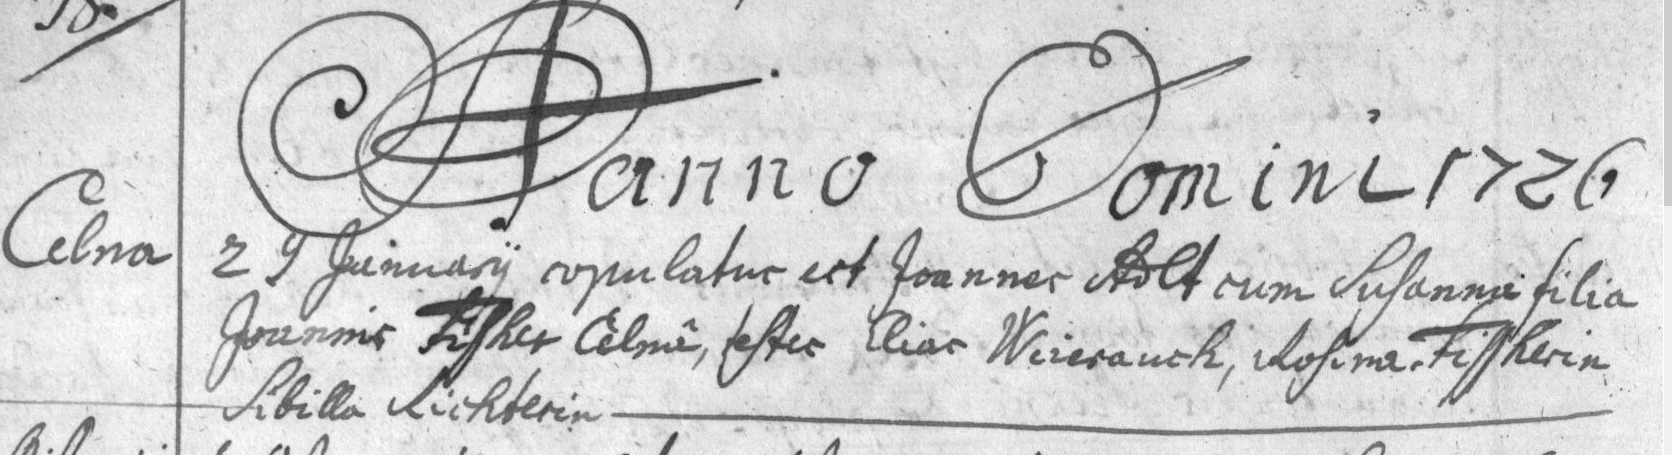 18.
Anno Domini 1726
Celna
29 Januarÿ copulatus est Joannes Adlt cum Susanna filia
Joannis Fisher Celnâ, testes Elias Weierauch, Rosina Fissherin
Sibilla Richterin